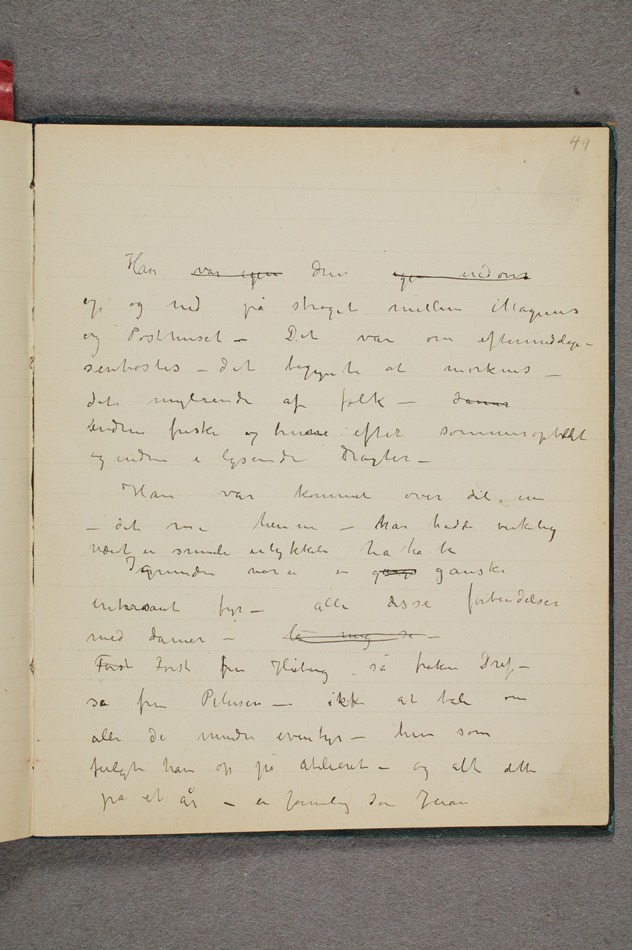 49
Han var igen drev igen ned om
op og ned på strøget mellem Magnus
og Posthuset – Det var om eftermiddagen
senhøstes – det begynte at mørknes –
det myldrende af folk – damer
endnu friske og brune efter sommeropholdt
og endnu i lysende Dragter –
Han var kommet over det nu
– det med henne – han hadde virkelig
været en smule ulykkelig ha ha ha
I grunden var en ganske
interesant fyr – alle disse forbindelser
med damer – la mig se –
Først Først fru Heiberg så frøken Dref –
så fru Petersen – ikke at tale om
alle de mindre eventyr – hun som
fulgte ham op på atelieret – og alt dette
på et år – en formelig Don Juan